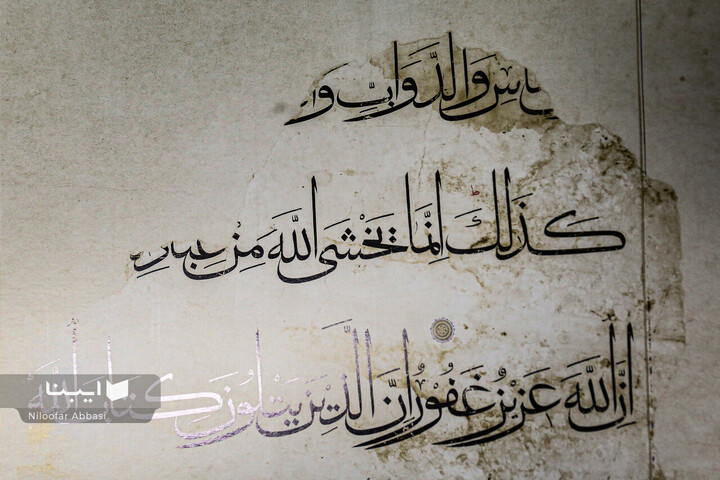 ـاسِ وَالدَّوَابِّ وَا
كَذَٰلِكَ اِنَّمَا يَخْشَى اللَّهَ مِنْ عِبَادِ
اِنَّ اللَّهَ عَزِيزٌ غَفُورٌ اِنَّ الَّذِينَ يَتْلُونَ كِتَابَ اللَّهِ
ایبنا
Niloofar Abbasi